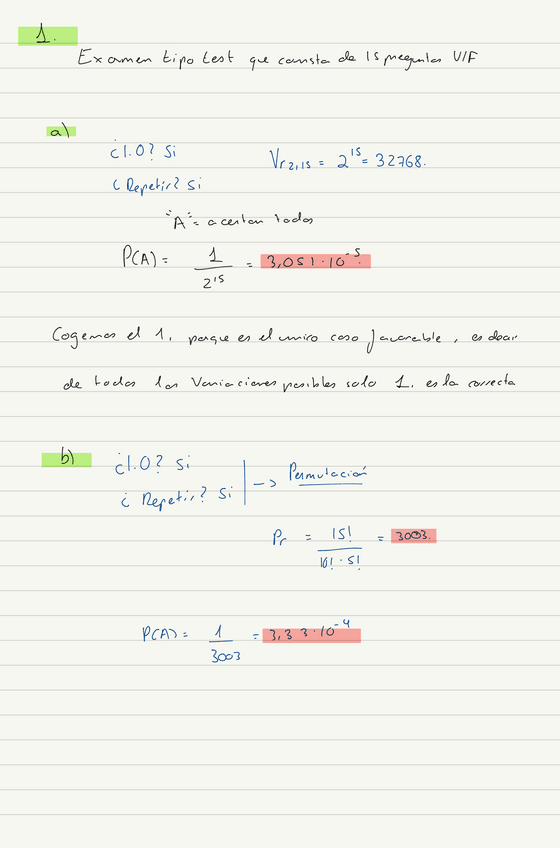 1.
Examen tipo test que consta de 15 preguntas V/F
a)
¿I.O? Si
Vr2,15 = 2^15 = 32768.
¿Repetir? Si
"A" = acertar todas
P(A) = 1/2^15 = 3,051·10^-5.
Cogemos el 1, porque es el unico caso favorable, es decir
de todas las Variaciones posibles solo 1. es la correcta
b)
¿I.O? Si
¿Repetir? Si -> Permutación
Pr = 15!/10!·5! = 3003.
P(A) = 1/3003 = 3,33·10^-4